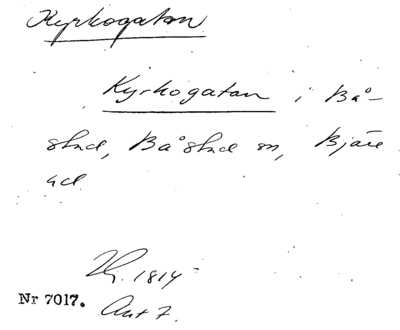 Kyrkogatan
Kyrkogatan i Bå-
stad, Båstad sn, Bjäre
hd
1814
Nr 7017.
Ant 7.